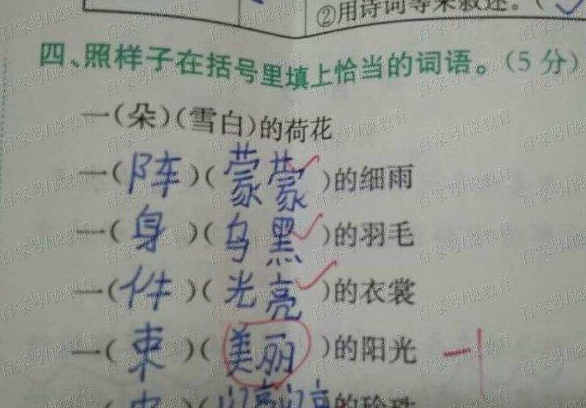 ②用诗词等来叙述。(✓
四、照样子在括号里填上恰当的词语。(5分)
一(朵)(雪白)的荷花
一(阵)(蒙蒙)的细雨
一(身)(乌黑)的羽毛
一(件)(光亮)的衣裳
一(束)(美丽)的阳光 -1
一(串)(的珍珠